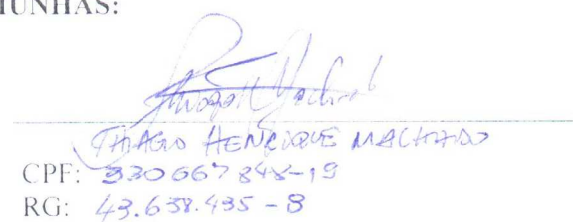 MUNHAS:
THIAGO HENRIQUE MACHADO
CPF: 330667848-19
RG: 43.638.435-8